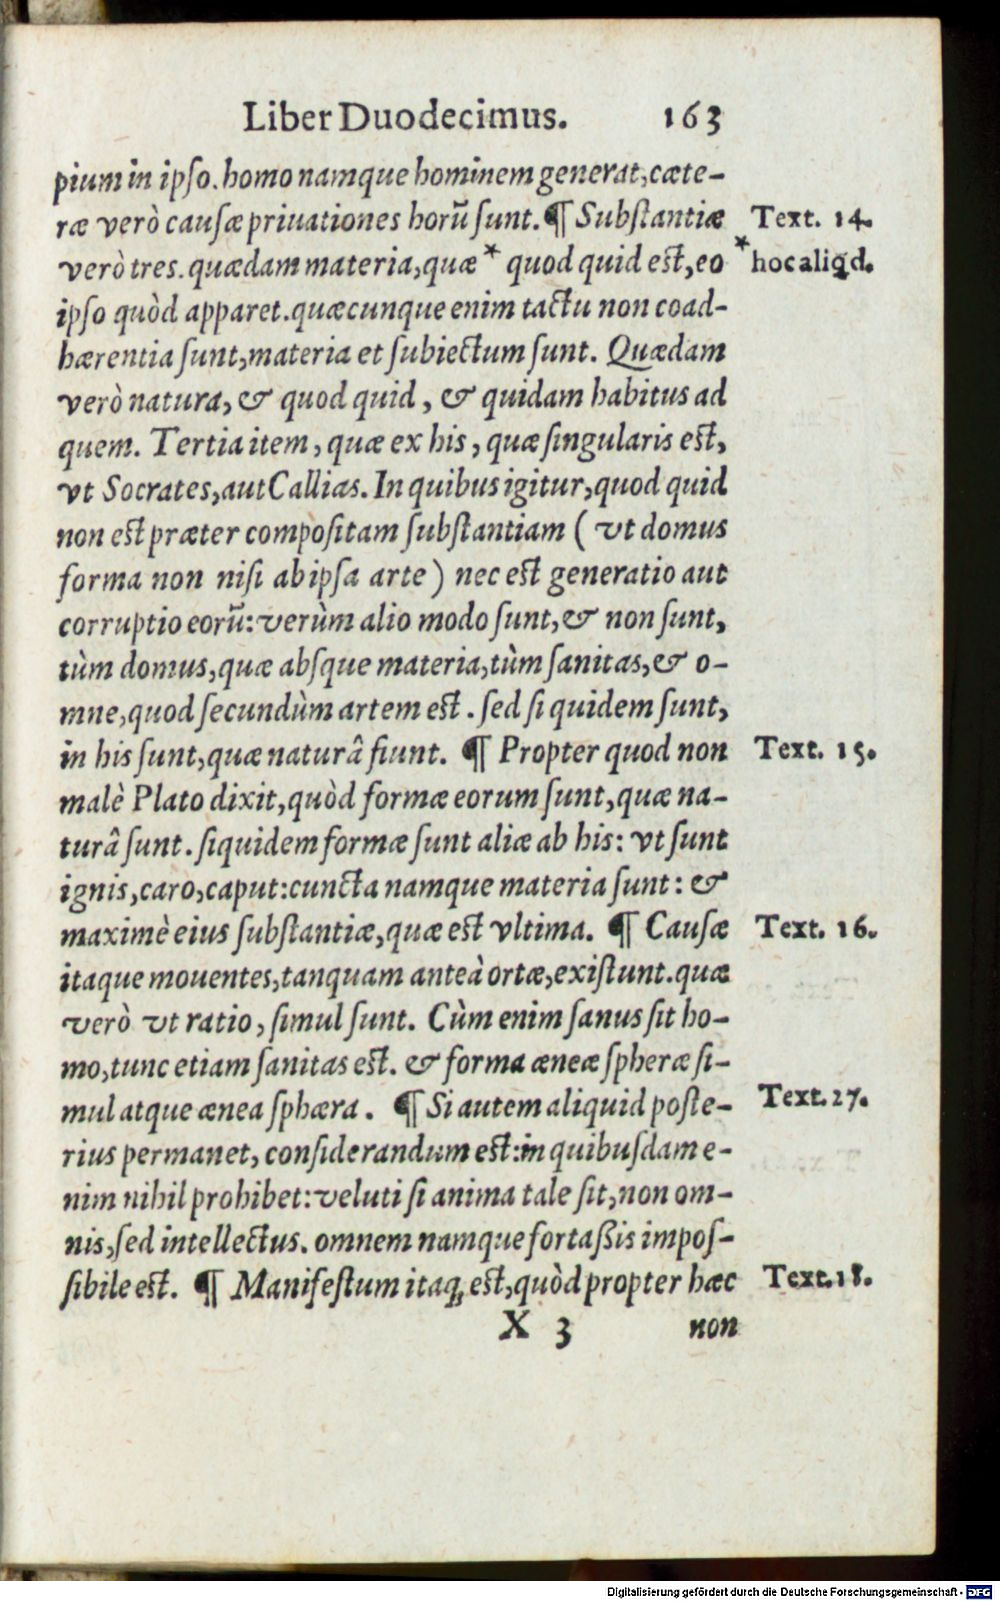 Liber Duodecimus. 163
pium in ipſo. homo namque hominem generat, cæte-
ræ verò cauſæ priuationes horũ ſunt. ¶ Subſtantiæ Text. 14.
verò tres. quædam materia, quæ * quod quid est, eo * hoc aliqd.
ipſo quòd apparet. quæcunque enim tactu non coad-
hærentia ſunt, materia et ſubiectum ſunt. Quædam
verò natura, & quod quid, & quidam habitus ad
quem. Tertia item, quæ ex his, quæ ſingularis est,
vt Socrates, aut Callias. In quibus igitur, quod quid
non est præter compoſitam ſubſtantiam ( vt domus
forma non niſi ab ipſa arte) nec est generatio aut
corruptio eorũ: verùm alio modo ſunt, & non ſunt,
tùm domus, quæ abſque materia, tùm ſanitas, & o-
mne, quod ſecundùm artem est. ſed ſi quidem ſunt,
in his ſunt, quæ naturâ fiunt. ¶ Propter quod non Text. 15.
malè Plato dixit, quòd formæ eorum ſunt, quæ na-
turâ ſunt. ſiquidem formæ ſunt aliæ ab his: vt ſunt
ignis, caro, caput: cuncta namque materia ſunt: &
maximè eius ſubſtantiæ, quæ est vltima. ¶ Cauſæ Text. 16.
itaque mouentes, tanquam anteà ortæ, exiſtunt. quæ
verò vt ratio, ſimul ſunt. Cùm enim ſanus ſit ho-
mo, tunc etiam ſanitas est. & forma æneæ ſpheræ ſi-
mul atque ænea ſphæra. ¶ Si autem aliquid poſte- Text. 27.
rius permanet, conſiderandum est: in quibuſdam e-
nim nihil prohibet: veluti ſi anima tale ſit, non om-
nis, ſed intellectus. omnem namque fortaßis impoſ-
ſibile est. ¶ Manifeſtum itaq; est, quòd propter hæc Text. 18.
X 3 non
Digitalisierung gefördert durch die Deutsche Forschungsgemeinschaft - DFG